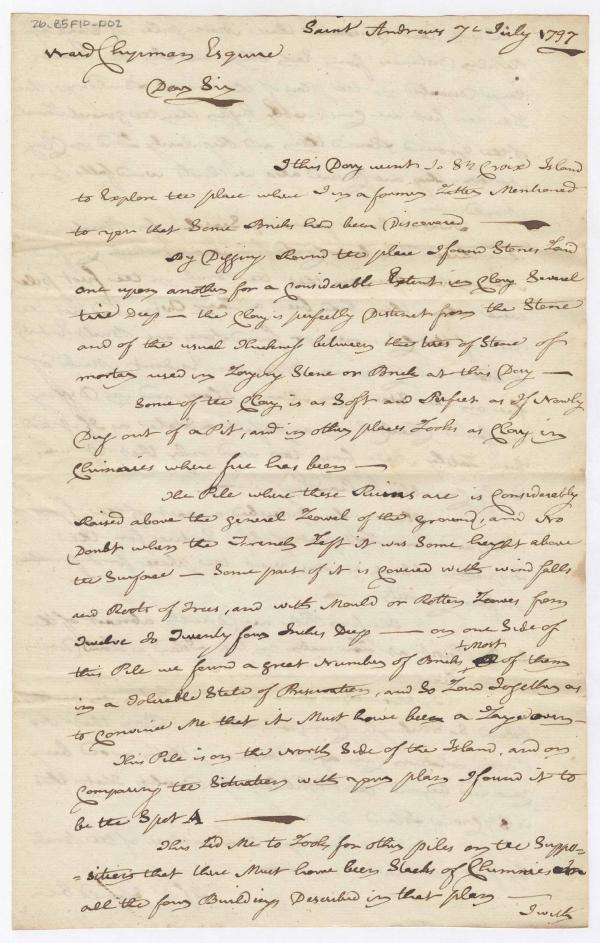 26.B5F10-D02
Saint Andrews 7th July 1797
Ward Chipman Esquire
Dear Sir
I this Day went to St Croix Island
to Explore the place where I in a former Letter Mentioned
to you that Some Bricks had been Discovered
By Digging Round the place I found Stones Laid
one upon another for a Considerable Extent in Clay Several
tire Deep — the Clay is perfectly Distinct from the Stone
and of the usual thickness between the tires of Stone of
morter used in Laying Stone or Brick at this Day —
Some of the Clay is as Soft and Perfect as if Newly
Dug out of a Pit, and in other places Looks as Clay in
Chimnies where fire has been —
The Pile where these Ruins are is Considerably
Raised above the general Leavel of the ground, and No
Doubt when the French Left it was Some height above
the Surface — Some part of it is Covered with wind falls
and Roots of Trees, and with Mould or Rotten Leaves from
Twelve to Twenty four Inches Deep — on one Side of
this Pile we found a great Number of Bricks Most of them
in a Tolerable State of Preservation, and So Laid Together as
to Convince Me that it Must have been a Large oven —
This Pile is on the North Side of the Island, and on
Comparing the Situation with your plan I found it to
be the Spot A
This Led Me to Look for other piles on the Suppo=
=sition that there Must have been Stacks of Chimnies
all the four Buildings Described in that plan —
I with